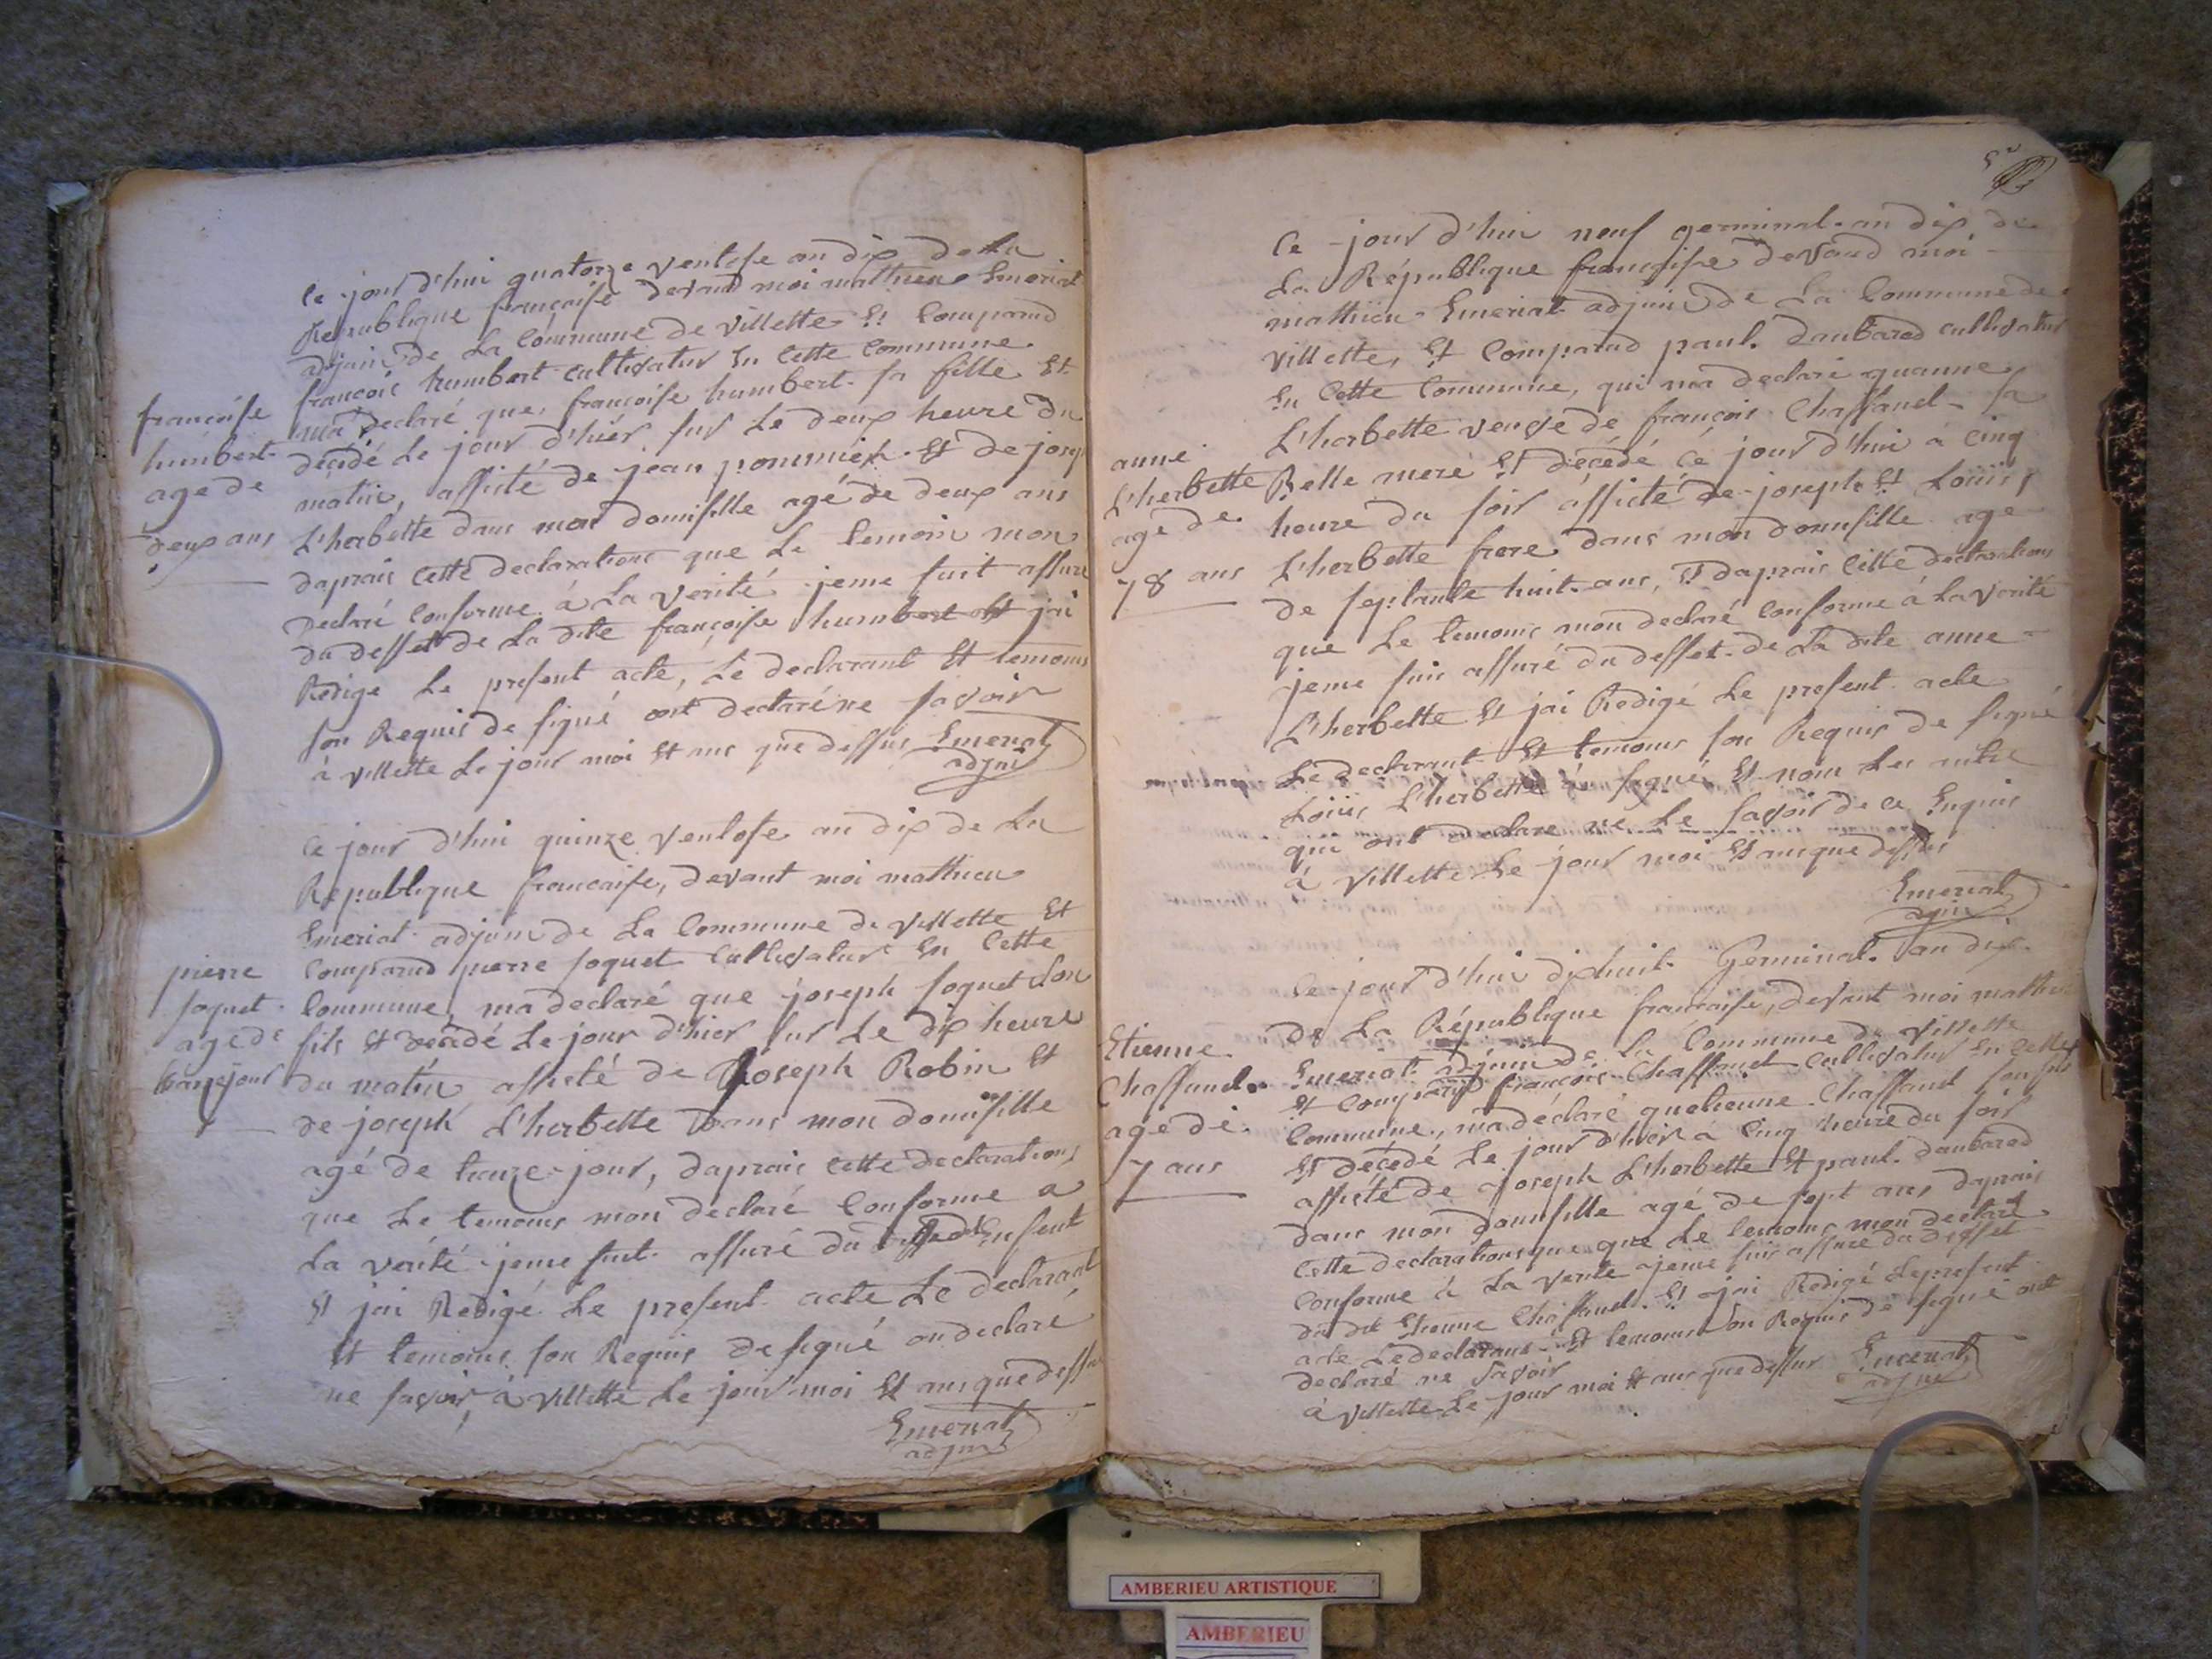 Ce jour d'hui quatorze ventose an dix de La
Republique françoise devand moi mathieu Emeriat
adjoin de La Commune de villette Et Comparud
francois humbert cultivatur En Cette Commune
ma declaré que françoise humbert sa fille Et
décédé Le jour d'hier sur Le deux heure du
matin, assisté de jean pommier Et de josep
L'herbette dans mon domisille agé de deux ans
daprais Cette declarations que Le temoin mon
declaré Conforme à La verité jeme suit assuré
du desset de La dite françoise humbert et jai
Redige Le present acte, Le declarant Et temoins
son Requis de signé ont declaré ne savoir
à villette Le jour moi Et ans que dessus Emeriat
adjoin
françoise
humbert
age de
deux ans
Ce jour d'hui quinze ventose an dix de La
Republique francaise, devant moi mathieu
Emeriat adjoin de La Commune de villette Et
Comparud pierre foquet Cultivatur En Cette
Commune, ma declaré que joseph foquet son
fils Et decédé Le jour d'hier sur Le dix heure
du matin assisté de Joseph Robin Et
de joseph L'herbette dans mon domisille
agé de traize jour, daprais Cette declarations
que Le temoins mon declaré Conforme a
La vérité jeme suit assuré du Enfent
Et jai Redigé Le present acte Le declarant
Et temoins son Requis de signé on declaré
ne savoir, à villette Le jour moi Et ans que dessus
Emeriat
adjoin
pierre
foquet
age de
traize jour
5
Ce jour d'hui neuf germinal an dix de
La République françoise devand moi
mathieu Emeriat adjoin de La Commune de
villette, Et Comparud paul daubarod cultivatur
En Cette Commune, qui ma declaré quanne
L'herbette veuve de françois Chaffaud sa
Belle mere Et décédé Cé jour d'hui à cinq
heure du soir assisté de joseph Et Loüis
L'herbette frere dans mon domisille age
de septante huit ans, Et daprais Cette declarations
que Le temoins mon declaré Conforme à La verité
jeme suis assuré du desset de La dite anne
L'herbette Et jai Redigé Le present acte
Le declarant Et temoins son Requis de signé
Loüis L'herbette à signé Et nom Les autre
qui ont declare ne Le savoir de ce Enquis
à villette Le jour moi Et ans que dessus
Emeriat
adjoin
anne
L'herbette
age de
78 ans
Ce jour d'hui dixhuit Germinal an dix
de La République francaise, devant moi mathieu
Emeriat adjoin de La Commune de villette
Et Comparud françois Chaffaud cultivatur En Cette
Commune, ma déclaré quetienne Chaffaud son fils
Et décédé Le jour d'hier à Cinq heure du soir
assisté de joseph L'herbette Et paul daubarod
dans mon domisille agé de sept ans daprais
Cette declarations que Le temoins mon declaré
Conforme à La verité jeme suis assuré du desset
du dit Etienne Chaffaud Et jai Redigé Le present
acte Le declarans Et temoins son Requis de signé ont
declaré ne savoir
à villette Le jour moi Et ans que dessus Emeriat
adjoin
Etienne
Chaffaud
age de
7 ans
AMBERIEU ARTISTIQUE
AMBERIEU